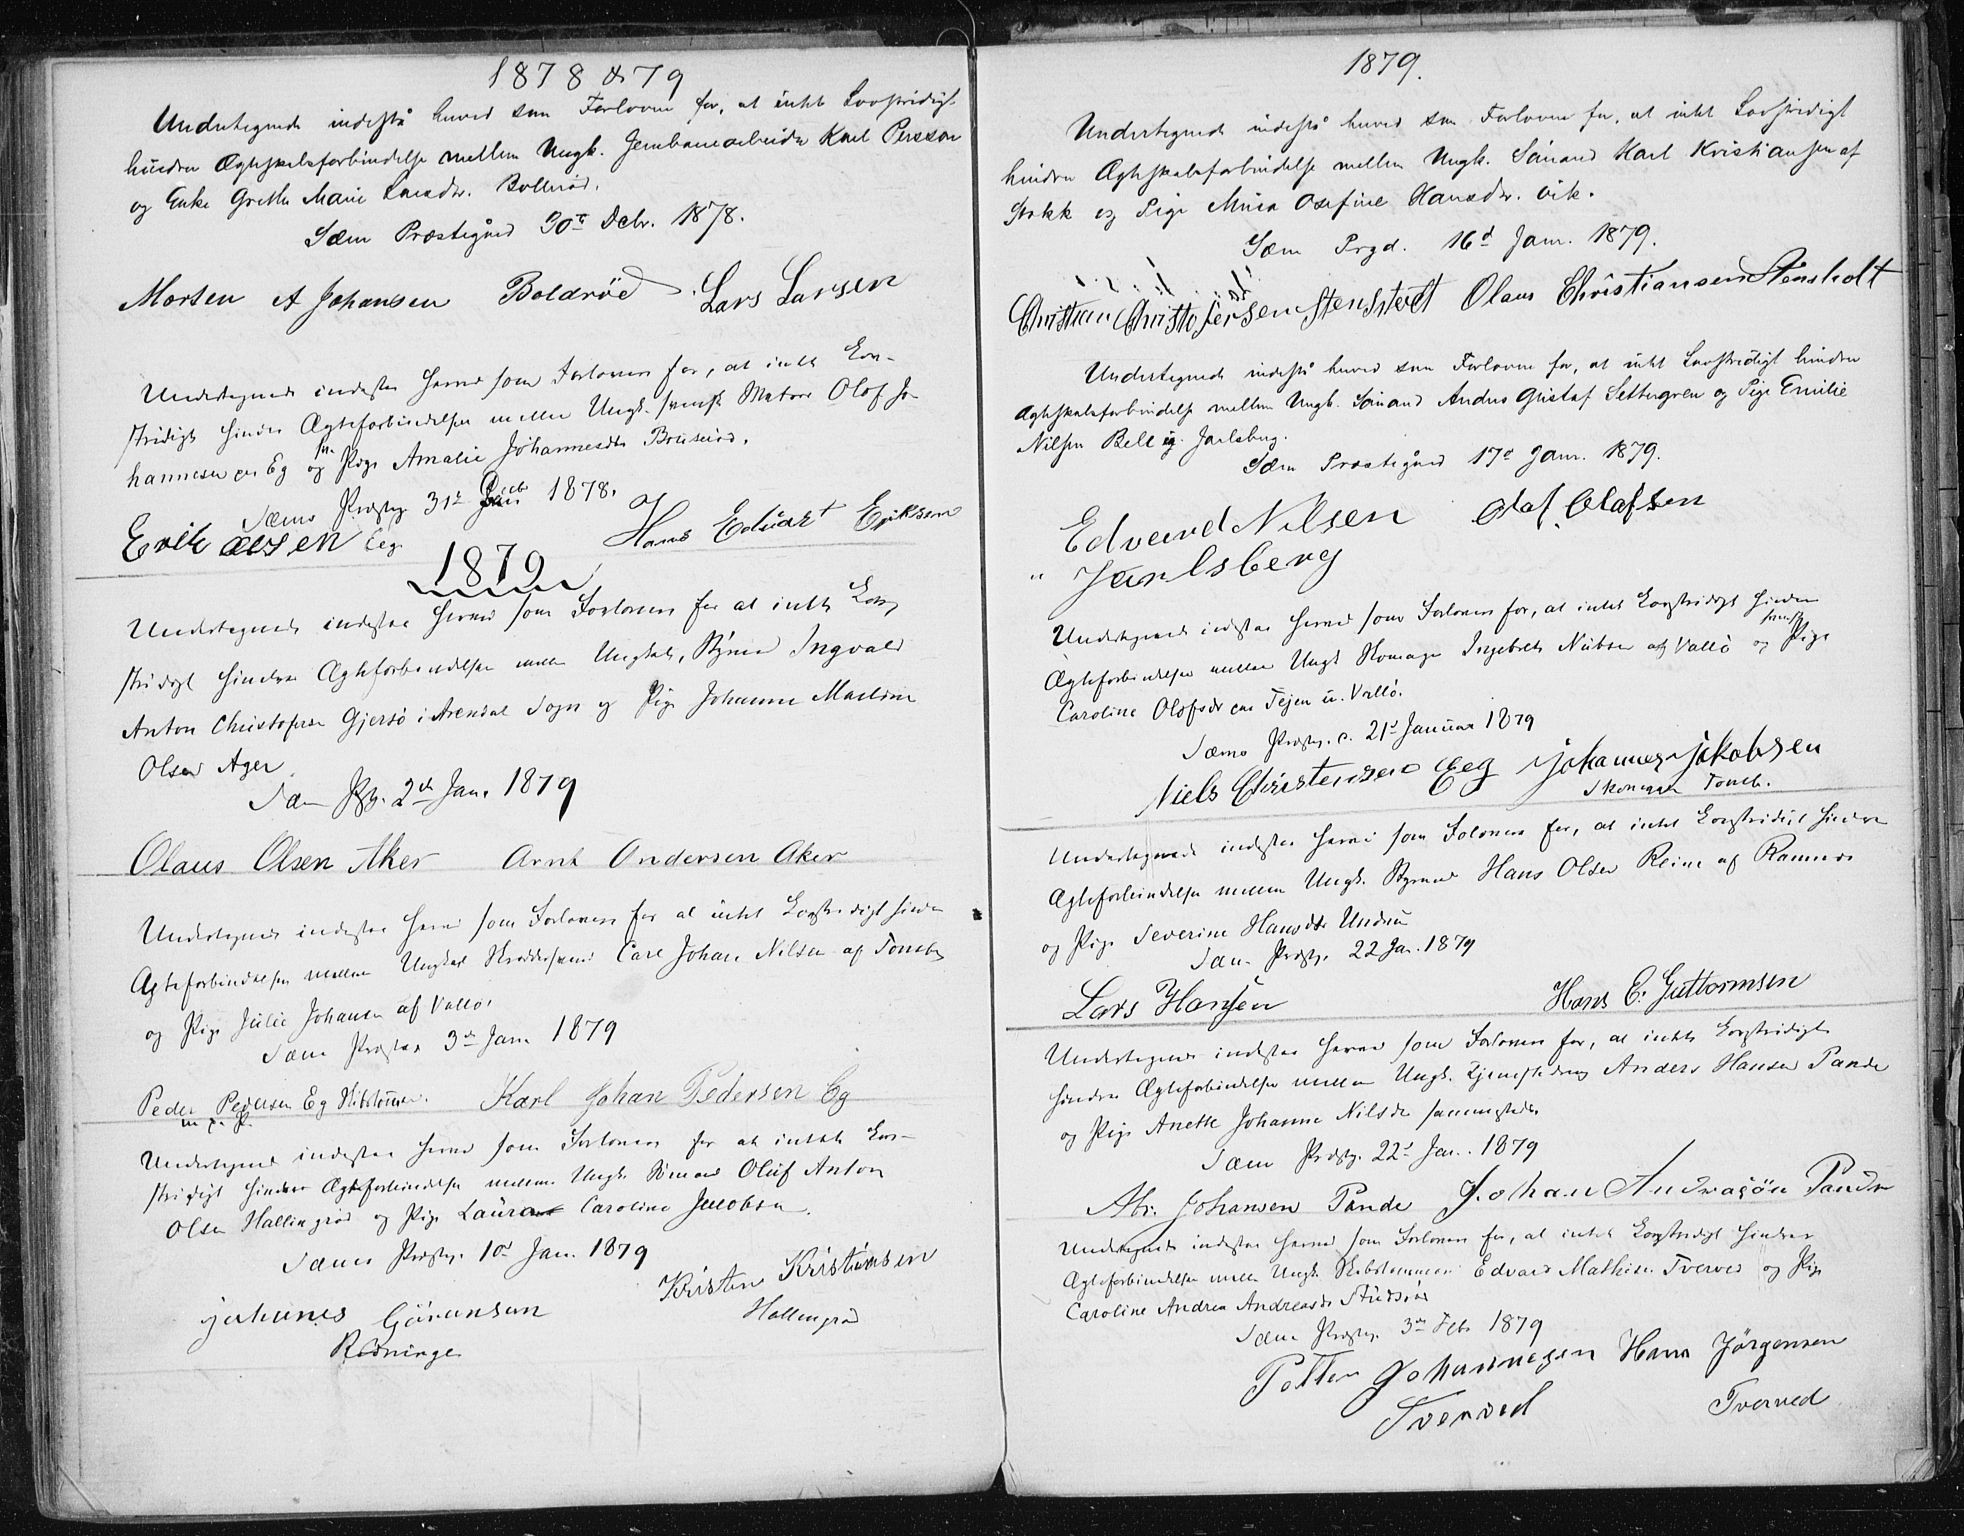 1878 & 79
Undertegnede indestå herved som Forlovere for, at intet Lovstridigt
hindrer Ægteskabsforbindelse mellem Ungk. Jernbanearbeider Karl Persson
og Enke Grethe Marie Larsdr. Bollerød.
Sæm Præstegård 30te Dcbr. 1878.
Morten A Johansen Boldrød. Lars Larsen
Undertegnede indestaa herved som Forlovere for, at intet Lov-
stridigt hindrer Ægteforbindelsen mellem Ungk. svensk Matros Olof Jo-
hannesen paa Eg og Pige Amalie Johannesdtr
Sæms Prstg. 31te Decb 1878.
Erik Olsen Eeg Hans Eduart Eriksen
1879
Undertegnede indestaa herved som Forlovere for at intet Lov-
stridigt hindrer Ægteforbindelsen mellem Ungkarl, Styrmd Ingvald
Anton Christofersen Gjersø i Arendal Sogn og Pige Johanne Mathine
Olsen Ager
Sæm Prstg. 2de Jan. 1879
Olaus Olsen Aker Arnt Andersen Aker
Undertegnede indestaa herved som Forlovere for at intet Lovstridigt hindrer
Ægteforbindelsen mellem Ungkarl Skræddersvend Carl Johan Nilsen af Tønsbg
og Pige Julie Johansen af Vallø.
Sæm Prstg. 3de Jan. 1879
Peder Pedersen Eg Skibstømmer. Karl Johan Pedersen Eg
m. p. P.
Undertegnede indestaa herved som Forlovere for at intet Lov-
stridigt hindrer Ægteforbindelse mellem Ungk. Sømand Oluf Anton
Olsen Hallingrød og Pige Laura Caroline Jacobsen.
Sæms Prstg. 10de Jan. 1879
Johanes Göransen Kristen Kristiansen
Rødninge Hallingrød
1879.
Undertegnede indestå herved som Forlovere for, at intet Lovstridigt
hindrer Ægteskabsforbindelse mellem Ungk. Sömand Karl Kristiansen af
Stokk og Pige Mina Osefine Hansdr. Vik.
Sæm Prgd. 16d Jan. 1879.
Christian Christofersen Stensholt Olaus Christiansen Stensholt
Undertegnede indestå herved som Forlovere for, at intet Lovstridigt hindrer
Ægteskabsforbindelse mellem Ungk. Sömand Anders Gustaf Settergren og Pige Emilie
Nilsen Bell Jarlsberg.
Sæm Præstegård 17de Jan. 1879.
Edvard Nilsen Olaf Olafsen
" Jarlsberg
Undertegnede indestaa herved som Forlovere for, at intet Lovstridigt hindrer
Ægteforbindelse mellem Ungk Skomager Ingebret Nubsen af Vallö og svensk Pige
Caroline Olofsdr paa Tejen u. Vallö.
Sæms Prstg. d. 21d Januar 1879
Niels Christensen Eeg Johannes Jakobsen
Skomager Tønsb.
Undertegnede indestaa herved som Forlovere for, at intet Lovstridigt hindrer
Ægteforbindelse mellem Ungk. Styrmd Hans Olsen Reine af Ramnes
og Pige Severine Hansdtr Undrum
Sæm Prstg. 22 Jan. 1879
Lars Hansen Hans C. Guttormsen
Undertegnede indestaa herved som Forlovere for, at intet Lovstridigt
hindrer Ægteforbindelse mellem Ungk. Tjenestedreng Anders Hansen Pande
og Pige Anette Johanne Nilsdr sammesteds
Sæm Prstg. 22d Jan. 1879
Abr. Johansen Pande Johan Andrasön Pande
Undertegnede indestaa herved som Forlovere for, at intet Lovstridigt hindrer
Ægteforbindelse mellem Ungk. Skibstømmerm. Edvard Mathisen Tverved og Pige
Caroline Andrea Andreasdr
Sæm Prstg. 3de Feb 1879
Petter Johannesen Hans Jörgensen
Tverved Tverved